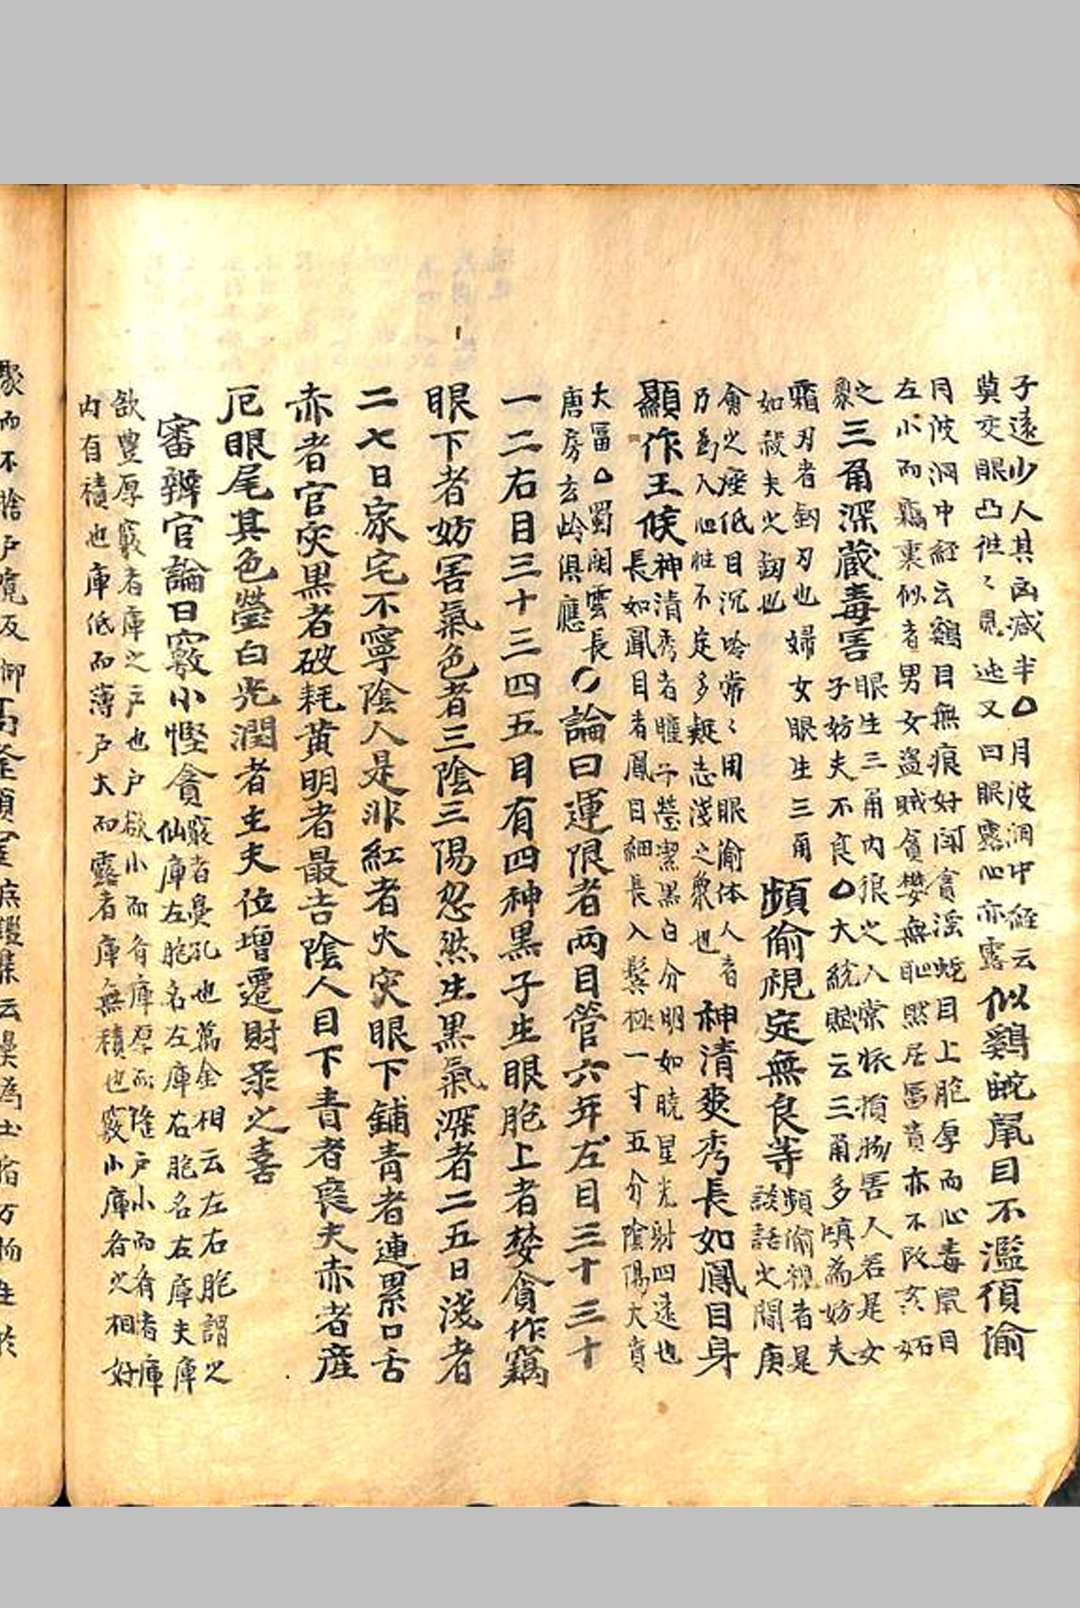 子遠少人其凶減半△月波洞中經云
莫交眼凸徃〻見迍又曰眼露心亦露
似鷄蛇鼠目不濫須偷
月波洞中経云鷄目無痕好鬪貪淫蛇目上胞厚而心毒鼠目
左小而竊裏似者男女盜賊貪婪無恥然居冨貴亦不改亥妬
之
三角深藏毒害
眼生三角内狠之人常懐損物害人若是女
子妨夫不良△大統賦云三角多嗔為妨夫
霜刃者釼刃也婦女眼生三角
如殺夫之釼也
頻偷視定無良等
頻偷視者是
談話之間庚
會之座低目沉吟常〻用眼偷体人者
乃為人心性不定多疑志淺之衆也
神清爽秀長如鳳目身
顯作王候
神清秀者瞳子瑩潔黒白分明如曉星光射四遠也
長如鳳目者鳳目細長入鬂極一寸五分陰陽大賁
大冨△蜀関雲長
唐房玄齡俱應
○論曰運限者两目管六年左目三十三十
一二右目三十三四五目有四神黒子生眼胞上者婪貪作竊
眼下者妨害氣色者三陰三陽忽然生黒氣深者二五日淺者
二七日家宅不寧陰人是非紅者火灾眼下鋪青者連累口舌
赤者官灾黒者破耗黄明者最吉陰人目下青者喪夫赤者産
厄眼尾其色瑩白光潤者主夫位增遷財录之喜
審辨官論曰竅小慳貪
竅者鼻孔也萬金相云左右胞謂之
仙庫左胞名左庫右胞名右庫夫庫
欲豊厚竅者庫之戸也戸欲小而有庫厚而隆戸小而有者庫
内有積也庫低而薄戸大而露者庫無積也竅小庫有之相好